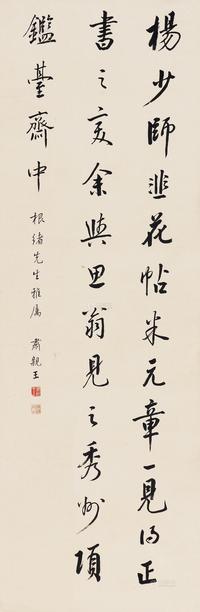 楊少師韭花帖米元章一見得正
書之文余與思翁見之秀州項
鑑臺齋中
根緒先生雅屬 肅親王